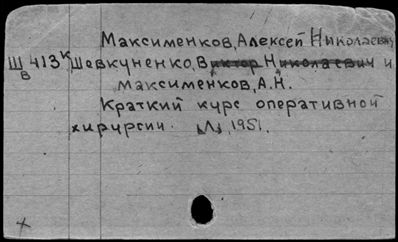 Максименков, Алексей Николаевич
Ш в 413к Шевкуненко, Виктор Николаевич и
Максименков, А.Н.
Краткий курс оперативной
хирургии. М, 1951.